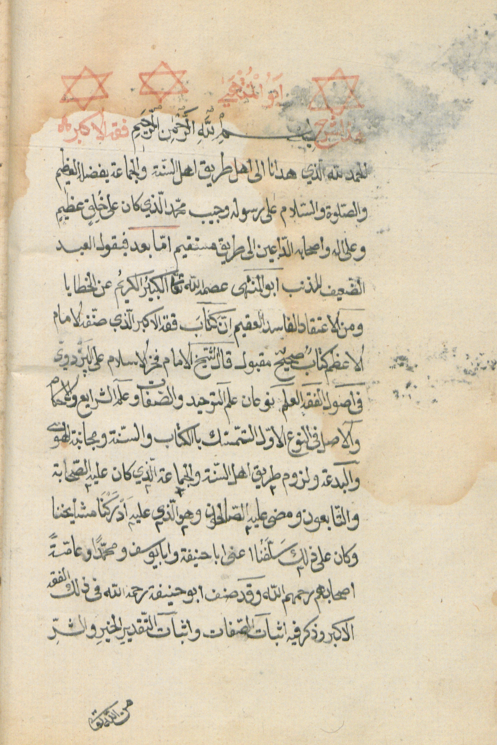 ابو المنتهى
هذا شرح فقه الاكبر
بسم الله الرحمن الرحيم
الحمد لله الذي هدانا الى اهل طريق اهل السنة والجماعة بفضل العظيم
والصلوة والسلام على رسوله وحبيب محمد الذي كان على خلق عظيم
وعلى اله واصحابه الداعين الى طريق مستقيم اما بعد فيقول العبد
الضعيف المذنب ابو المنتهى عصمه الله تعالى الكبير الكريم عن الخطايا
ومن الاعتقاد الفاسد العقيم ان كتاب فقه الاكبر الذي صنفه الامام
الاعظم كتاب صحيح مقبول قال الشيخ الامام فخر الاسلام على البزدوى
في اصول الفقه العلم نوعان علم التوحيد والصفات وعلم الشرايع والاحكام
والاصل في النوع الاول التمسك بالكتاب والسنة ومجانبة الهوى
والبدعة ولزوم طريق اهل السنة والجماعة الذي كان عليه الصحابة
والتابعون ومضى عليه الصالحون وهو الذي عليه ادركنا مشايخنا
وكان على ذلك سلفنا اعنى ابا حنيفة وابا يوسف ومحمدا وعامة
اصحابهم رحمهم الله وقد صنف ابو حنيفة رحمه الله في ذلك الفقه
الاكبر وذكر فيه اثبات الصفات واثبات التقدير الخير والشر
من الله تعالى